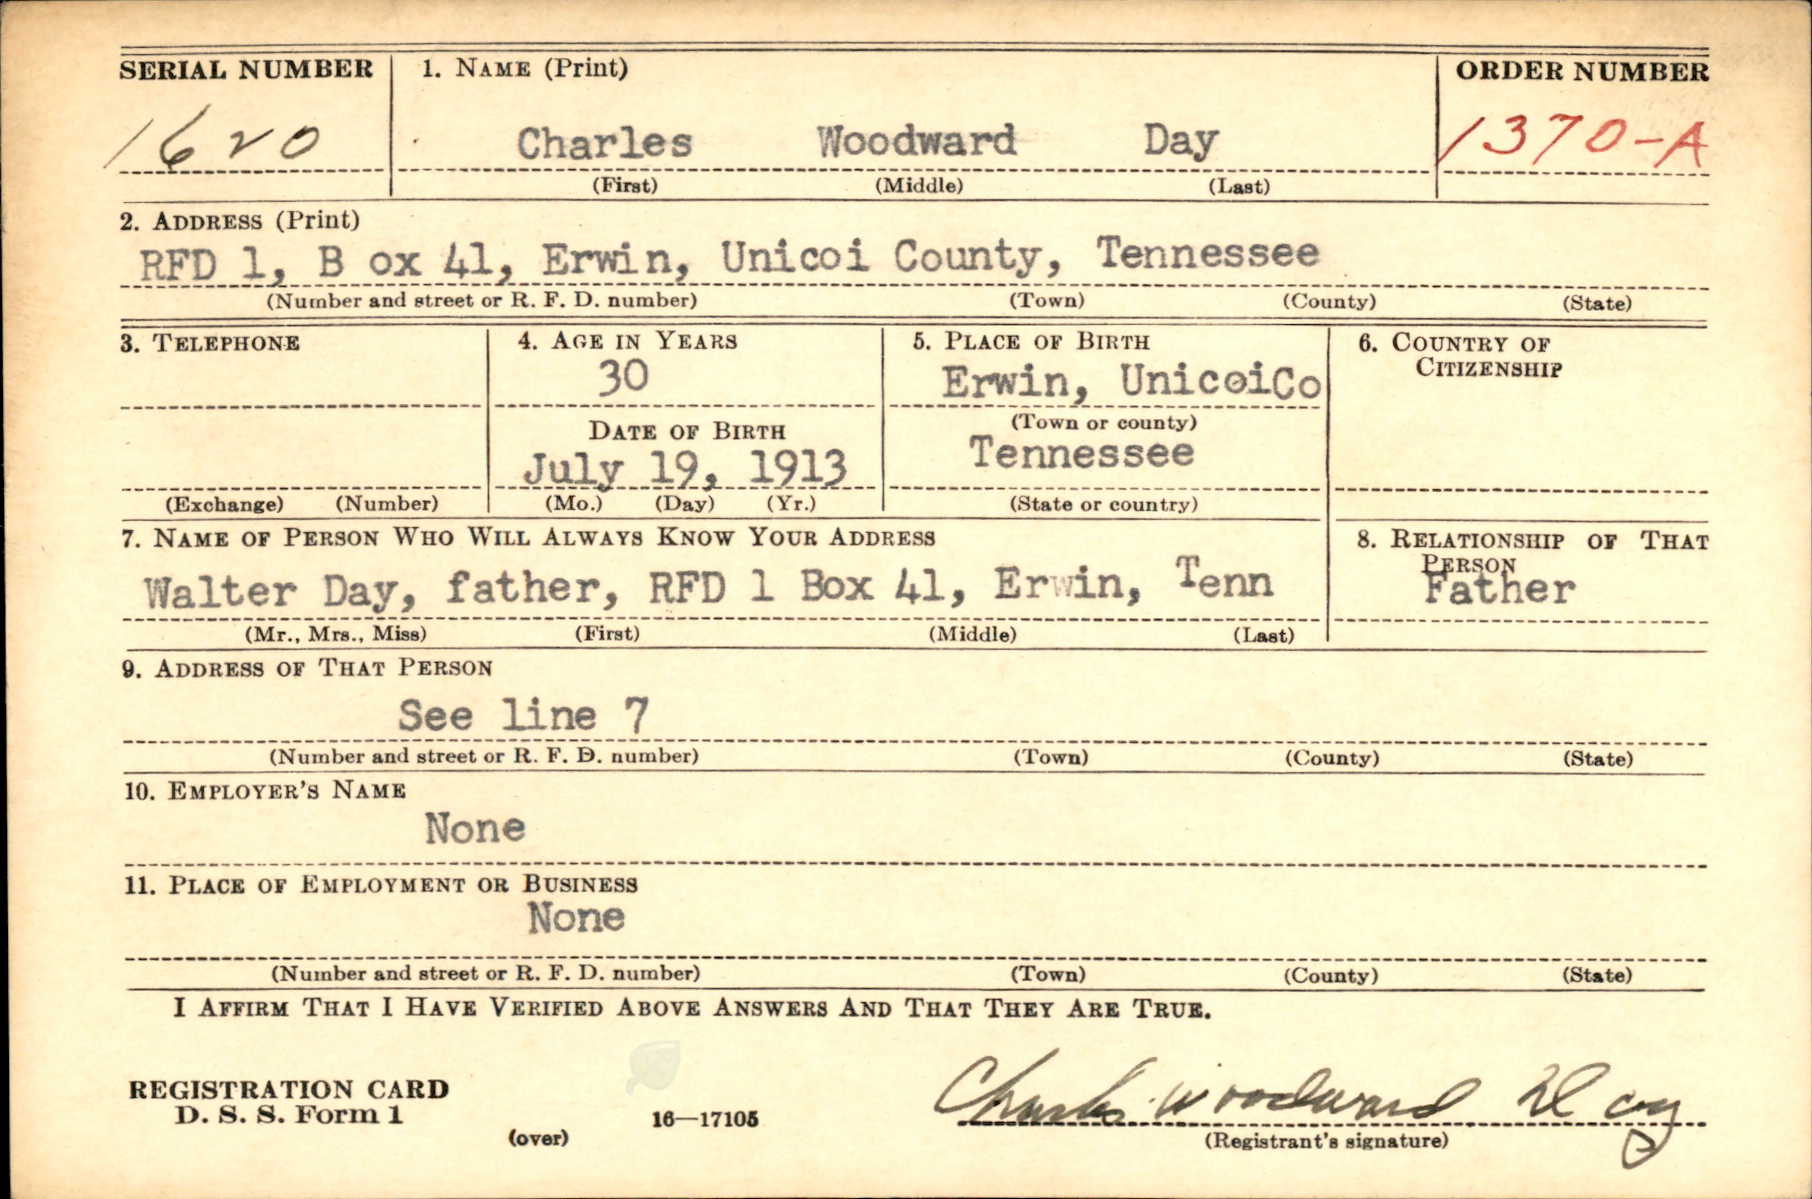 SERIAL NUMBER 1. NAME (Print) ORDER NUMBER
1620 Charles Woodward Day 1370-A
(First) (Middle) (Last)
2. ADDRESS (Print)
RFD 1, B ox 41, Erwin, Unicoi County, Tennessee
(Number and street or R. F. D. number) (Town) (County) (State)
3. TELEPHONE 4. AGE IN YEARS 5. PLACE OF BIRTH 6. COUNTRY OF
CITIZENSHIP
30 Erwin, UnicoiCo
(Town or county)
DATE OF BIRTH
July 19, 1913 Tennessee
(Exchange) (Number) (Mo.) (Day) (Yr.) (State or country)
7. NAME OF PERSON WHO WILL ALWAYS KNOW YOUR ADDRESS 8. RELATIONSHIP OF THAT
PERSON
Walter Day, father, RFD 1 Box 41, Erwin, Tenn Father
(Mr., Mrs., Miss) (First) (Middle) (Last)
9. ADDRESS OF THAT PERSON
See line 7
(Number and street or R. F. D. number) (Town) (County) (State)
10. EMPLOYER'S NAME
None
11. PLACE OF EMPLOYMENT OR BUSINESS
None
(Number and street or R. F. D. number) (Town) (County) (State)
I AFFIRM THAT I HAVE VERIFIED ABOVE ANSWERS AND THAT THEY ARE TRUE.
REGISTRATION CARD
D. S. S. Form 1 16—17105 Charles Woodward Day
(over) (Registrant's signature)